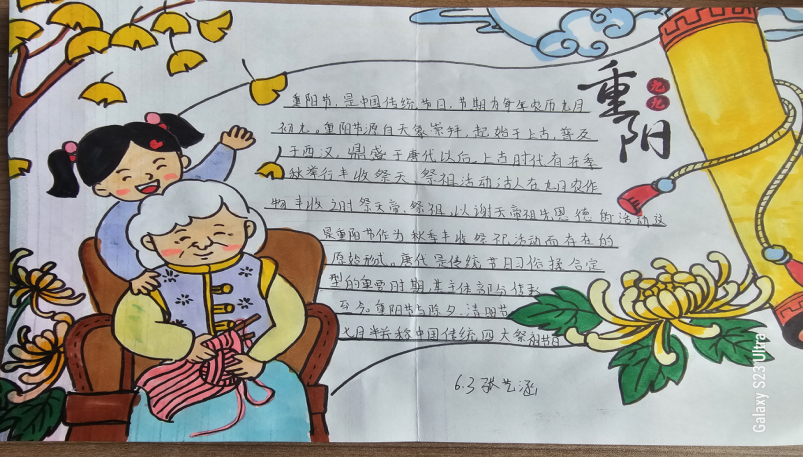 重阳
记忆
重阳节，是中国传统节日，节期为每年农历九月
初九。重阳节源自天象崇拜，起始于上古，普及
于西汉，鼎盛于唐代以后。上古时代有在季
秋举行丰收祭天、祭祖活动古人在九月农作
物丰收之时祭天帝、祭祖，以谢天帝祖先恩德的活动这
是重阳节作为秋季丰收祭祀活动而存在的
原始形式。唐代是传统节日习俗揉合定
型的重要时期，其主体部与传承
至今。重阳节与除夕、清明节
七月半并称中国传统四大祭祖节日
6.3 张艺涵
Galaxy S23 Ultra